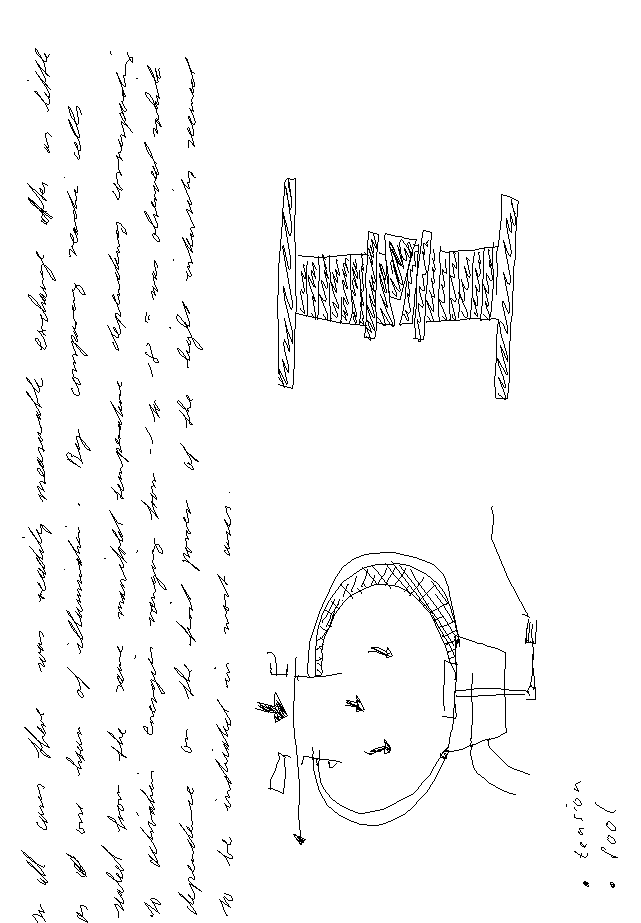 In all cases there was readily measurable exchange after as little
as one hour of illumination. By comparing reaction cells
sealed from the same manifold temperature dependency corresponding
to activation energies ranging from was observed
dependence on the first power of the light intensity seemed
to be indicated in most cases.
• tension
• pool